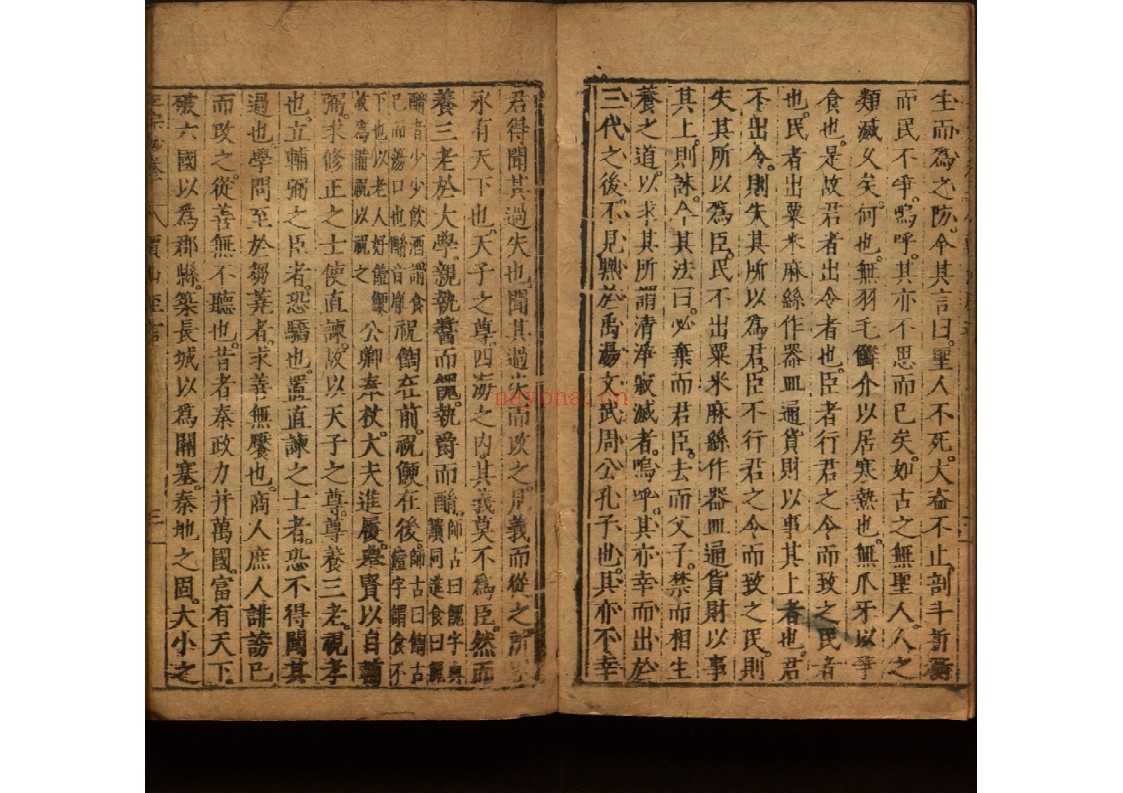 生而爲之防。今其言曰。聖人不死。大盗不止。剖斗折衡
而民不爭。嗚呼。其亦不思而已矣。如古之無聖人。人之
類滅乆矣。何也。無羽毛鱗介以居寒熱也。無爪牙以爭
食也。是故君者出令者也。臣者行君之令而致之民者
也。民者出粟米麻絲作器皿通貨財以事其上者也。君
不出令。則失其所以爲君。臣不行君之令而致之民。則
失其所以爲臣。民不出粟米麻絲作器皿通貨財以事
其上。則誅。今其法曰。必棄而君臣。去而父子。禁而相生
養之道。以求其所謂清淨寂滅者。嗚呼。其亦幸而出於
三代之後。不見黜於禹湯文武周公孔子也。其亦不幸
君得聞其過失也。聞其過失而改之。見義而從之。所以
永有天下也。天子之尊。四海之内。其義莫不爲臣。然而
養三老於大學。親執醬而餽。執爵而酳。師古曰餽字與饋同進食曰餽
酳音少少飲酒謂食已而蕩口也酳音胤祝餶在前。祝鯁在後。師古曰餶古饐字謂食不
下也以老人好饐鯁故爲備祝以祝之公卿奉杖。大夫進履。舉賢以自輔
弼。求修正之士使直諫。故以天子之尊。尊養三老。視孝
也。立輔弼之臣者。恐驕也。置直諫之士者。恐不得聞其
過也。學問至於芻蕘者。求善無饜也。商人庶人誹謗已
而改之。從善無不聽也。昔者秦政力并萬國。富有天下。
破六國以爲郡縣。築長城以爲關塞。秦地之固。大小之
賈山至言
nayona.cn